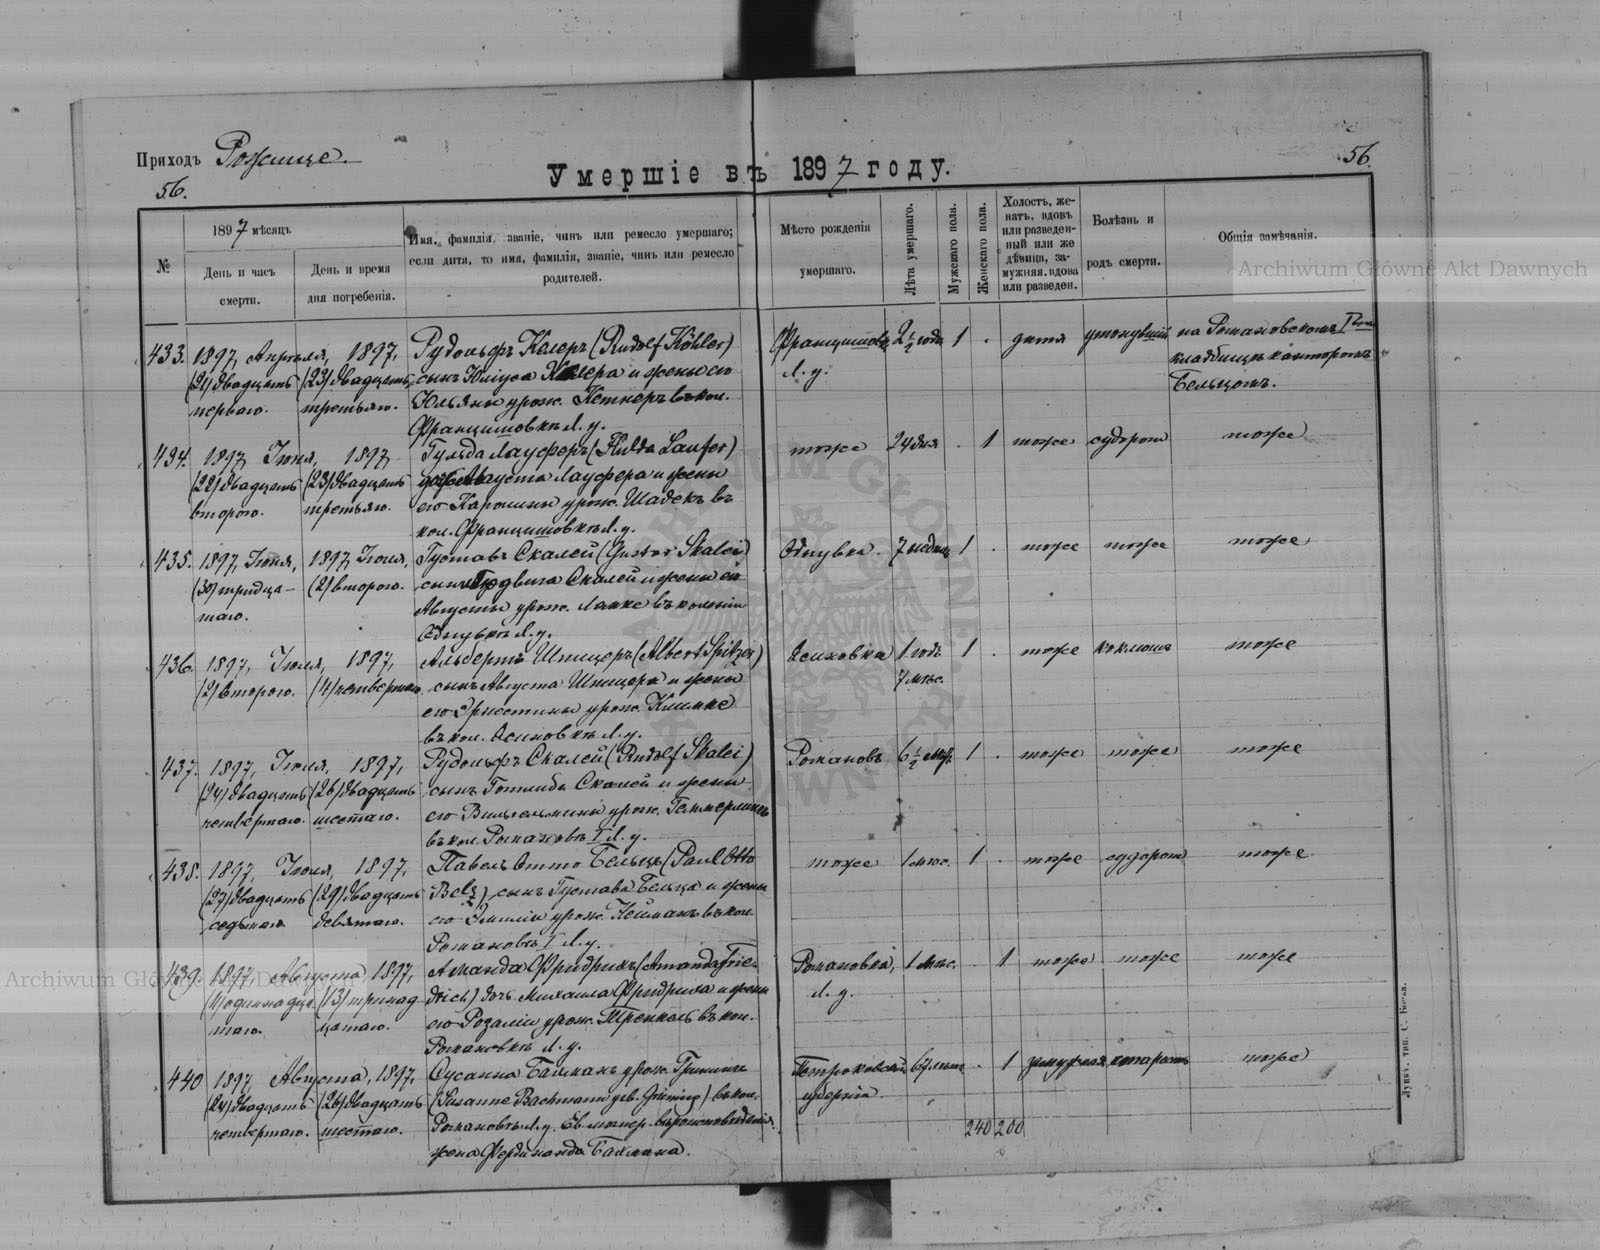 Приходъ Рожище.
56.
Умершіе въ 1897 году.
56.
№
1897 мѣсяцъ
День и часъ смерти.
День и время дня погребенія.
Имя, фамилія, званіе, чинъ или ремесло умершаго;
если дитя, то имя, фамилія, званіе, чинъ или ремесло
родителей.
Мѣсто рожденія
умершаго.
Лѣта умершаго.
Мужскаго пола.
Женскаго пола.
Холостъ, же-
натъ, вдовъ
или разведен-
ный или же
дѣвица, за-
мужняя, вдова
или разведен.
Болѣзнь и
родъ смерти.
Общія замѣчанія.
Archiwum Główne Akt Dawnych
433. 1897, Апрѣля, 1897, Рудольфъ Келеръ (Rudolf Köhler) 2 1/2 года 1 . дитя утонувшій на Романовскомъ I
(21) двадцать (23) двадцать сынъ Юліуса Келера и жены его Л. у. кладбищѣ канторомъ
перваго. третьяго. Юльяны урож. Кетнеръ въ кол. Бельцомъ.
Францишовкѣ Л. у.
434. 1897, Іюня, 1897, Гульда Лауферъ (Hulda Laufer) тоже 24 дня . 1 тоже судорог тоже
(22) двадцать (23) двадцать Августа Лауфера и жены
второго. третьяго. его Каролины урож. Шадекъ въ
кол. Францишовкѣ Л. у.
435. 1897, Іюня, 1897, Іюля, Густавъ Скалей (Gustav Skalei) 7 недѣль 1 . тоже тоже тоже
(30) тридца- (2) второго. сынъ Скалей и жены его
таго. Августы урож. Ланке въ колоніи
Л. у.
436. 1897, Іюля, 1897, Альбертъ Шпицеръ (Albert Spitzer) Осиновка 1 годъ 1 . тоже коклюшъ тоже
(2) второго. (4) четвертаго. сынъ Августа Шпицера и жены 7 мѣс.
его Эрнестины урож. Климке
въ кол. Осиновкѣ Л. у.
437. 1897, Іюля, 1897, Рудольфъ Скалей (Rudolf Skalei) Романовъ 6 1/2 1 . тоже тоже тоже
(24) двадцать (26) двадцать сынъ Готлиба Скалей и жены
четвертаго. шестаго. его Вильгельмины урож.
въ кол. Романовѣ I Л. у.
438. 1897, Іюля, 1897, Павелъ Отто Бельцъ (Paul Otto тоже 1 мѣс. 1 . тоже судорог тоже
(27) двадцать (29) двадцать Belz), сынъ Густава Бельца и жены
седьмаго девятаго. его Эмиліи урож. Нейманъ въ кол.
Романовѣ I Л. у.
Archiwum Główne Akt Dawnych
439. 1897, Августа, 1897, Аманда Фридрихъ (Amanda Frie- Романовка, 1 мѣс. . 1 тоже тоже тоже
(11) одиннадца (13) тринад drich) дочь Михаила Фридриха и жены Л. у.
таго. цатаго. его Розаліи урож. Тренкель въ кол.
Романовкѣ Л. у.
440 1897, Августа, 1897, Сусанна Бахманъ урож. Петроковской . 1 замужняя старость тоже
(24) двадцать (26) двадцать (Susanne Bachmann geb. ) въ кол. губерніи.
четвертаго. шестаго. Романовѣ Л. у. 240 200
жена Фердинанда Бахмана.
Луцкъ, тип. С. Бокса.